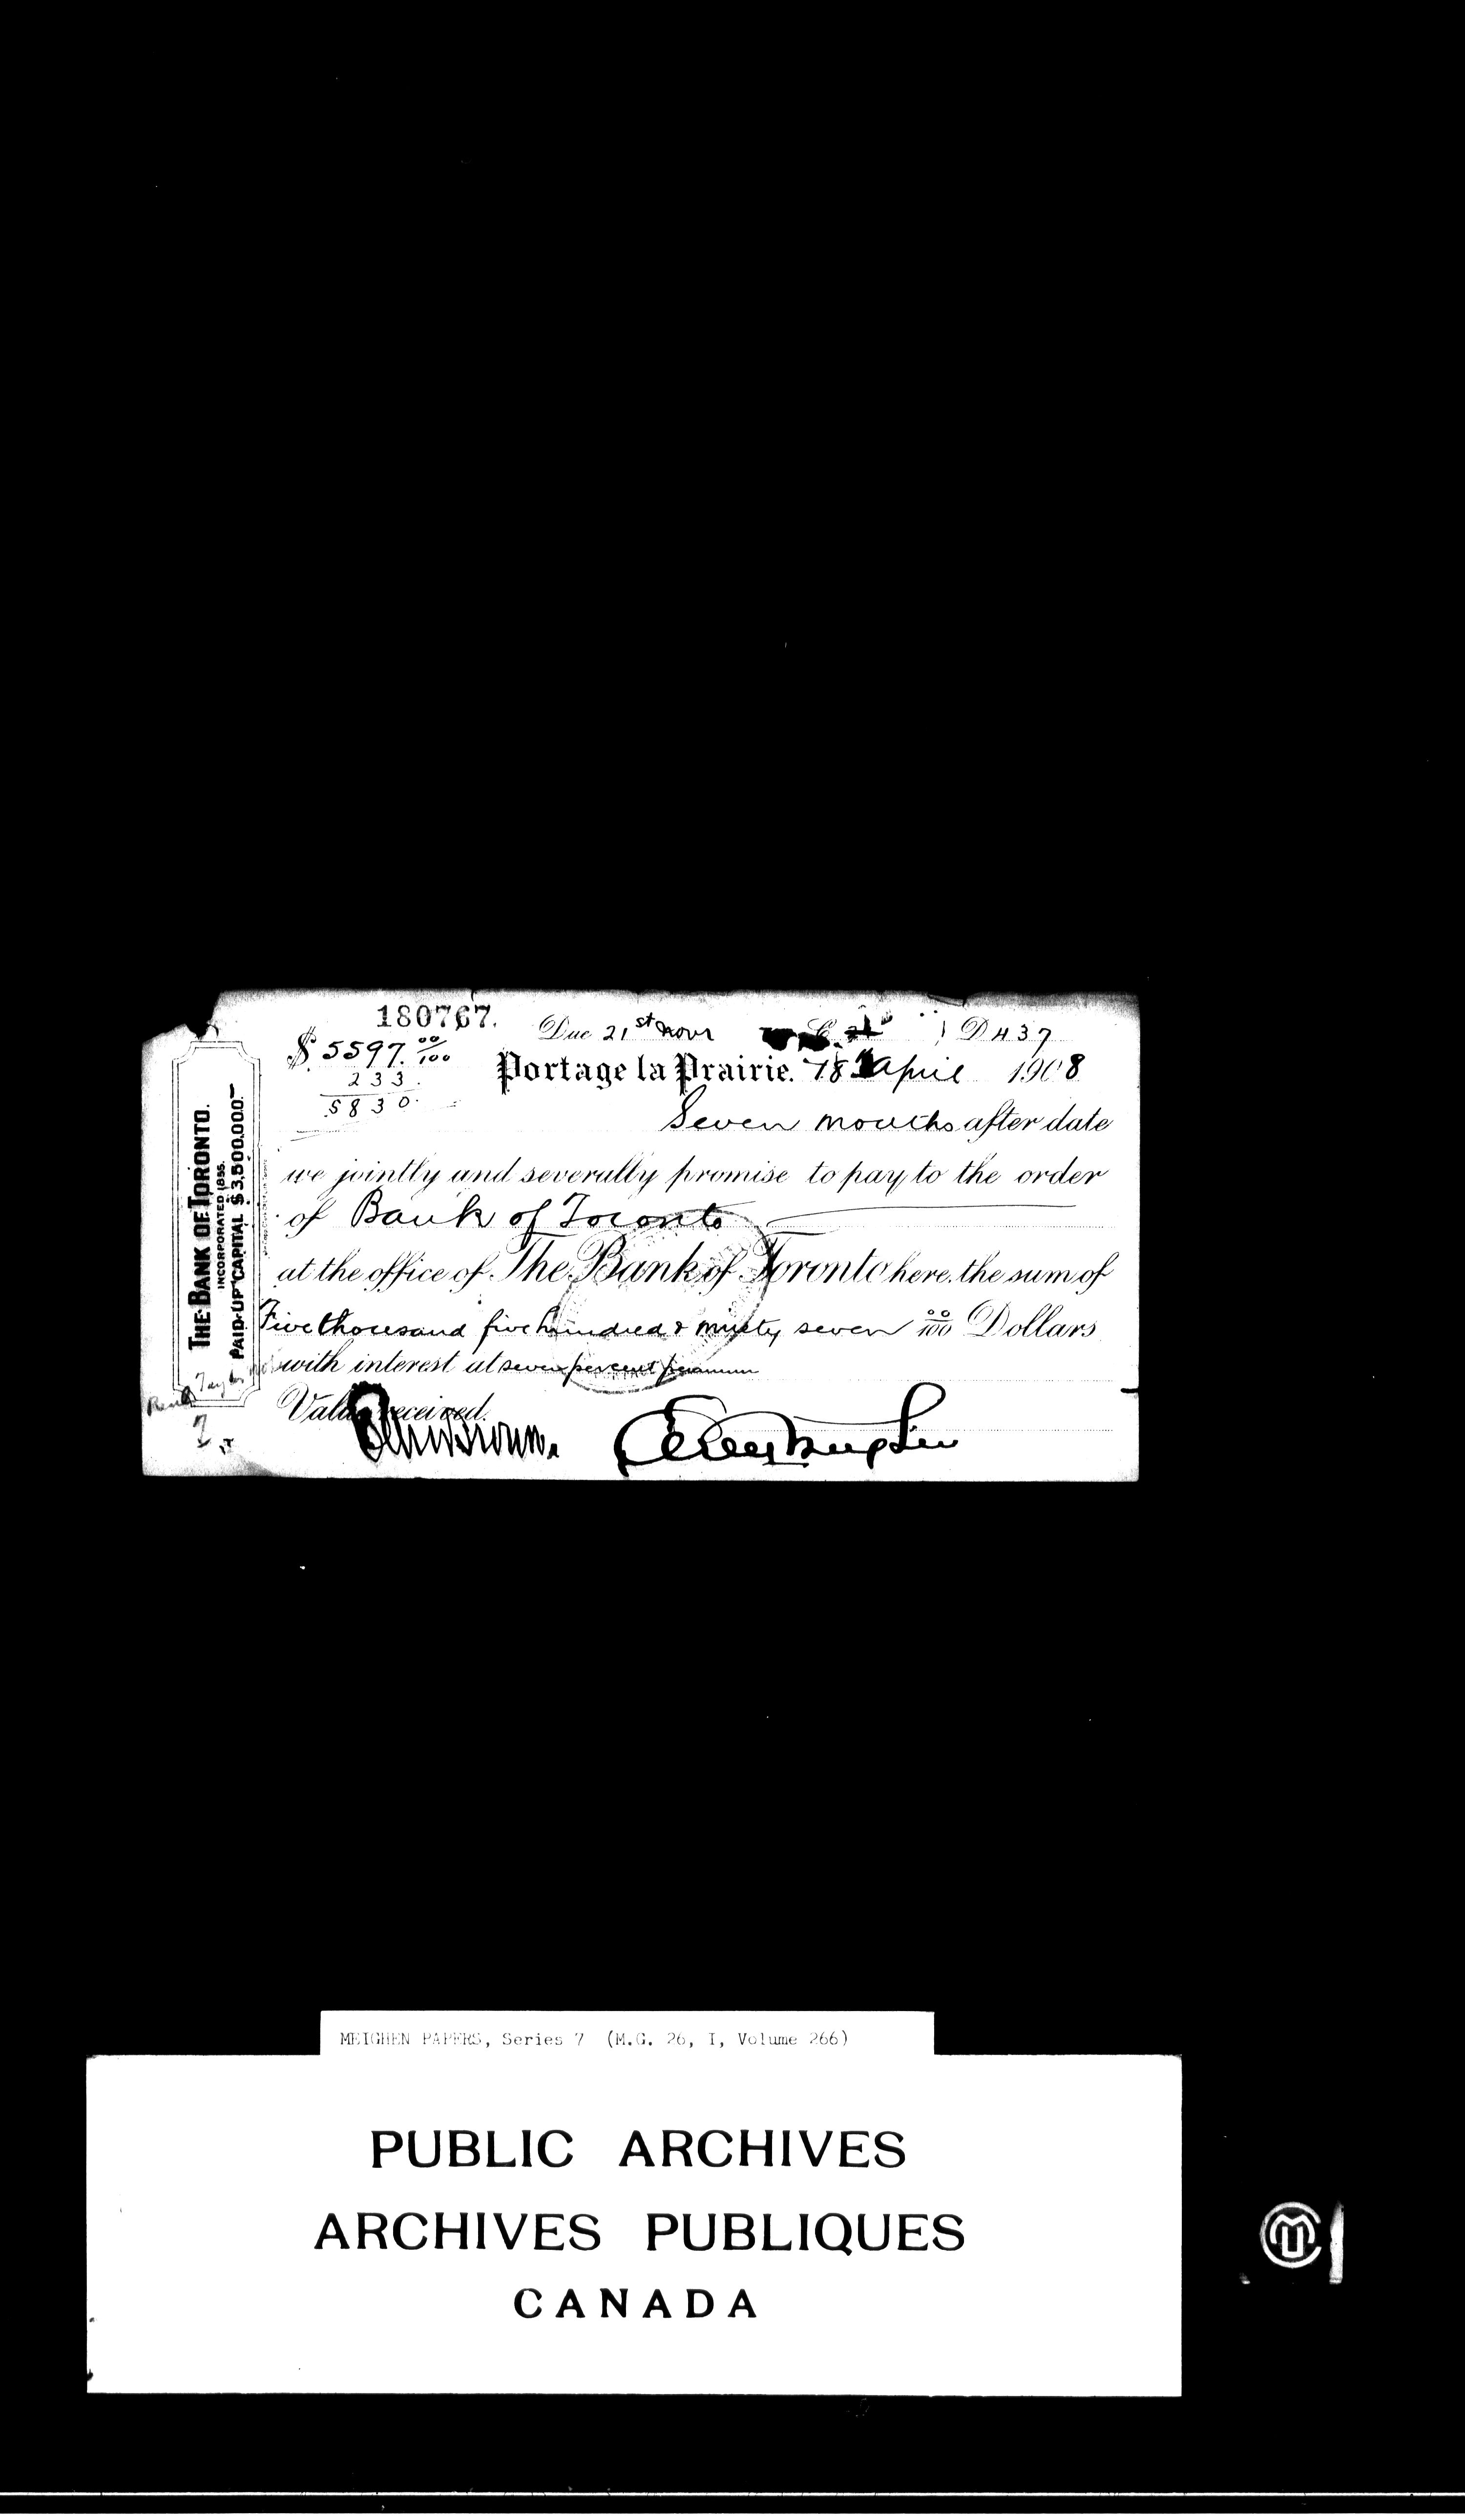 180767.
Due 21st Novr
D 437
$ 5597. 00/100
233.
5830.
Portage la Prairie. 18 April 1908
Seven months after date
we jointly and severally promise to pay to the order
of Bank of Toronto
at the office of The Bank of Toronto here, the sum of
Five thousand five hundred & ninety seven 00/100 Dollars
with interest at seven per cent per annum
Value received.
THE BANK OF TORONTO.
INCORPORATED 1855.
PAID-UP CAPITAL $3,500,000.—
MEIGHEN PAPERS, Series 7 (M.G. 26, I, Volume 266)
PUBLIC ARCHIVES
ARCHIVES PUBLIQUES
CANADA